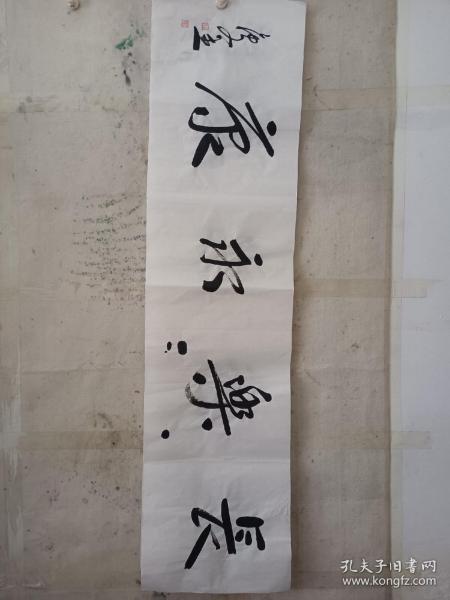 長樂永康
孔夫子旧书网
www.kongfz.com